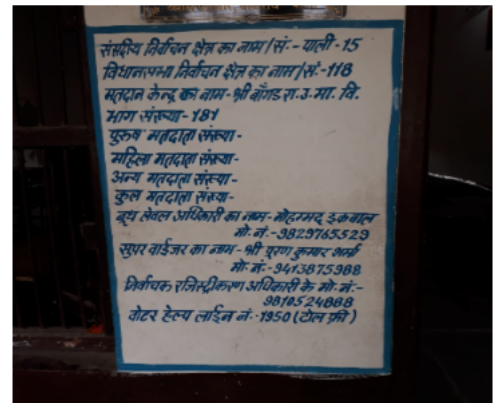 संसदीय निर्वाचन क्षेत्र का नाम/सं.- पाली-15
विधानसभा निर्वाचन क्षेत्र का नाम/सं.-118
मतदान केन्द्र का नाम-श्री बाँगड रा.उ.मा. वि.
भाग संख्या-181
पुरुष मतदाता संख्या-
महिला मतदाता संख्या-
अन्य मतदाता संख्या-
कुल मतदाता संख्या-
बूथ लेवल अधिकारी का नाम-मोहम्मद इकबाल
मो.नं.-9829765529
सुपर वाईजर का नाम-श्री पूरण कुमार शर्मा
मो.नं.-9413875988
निर्वाचक रजिस्ट्रीकरण अधिकारी के मो.नं.-
9810524888
वोटर हेल्प लाईन नं.-1950 (टोल फ्री)